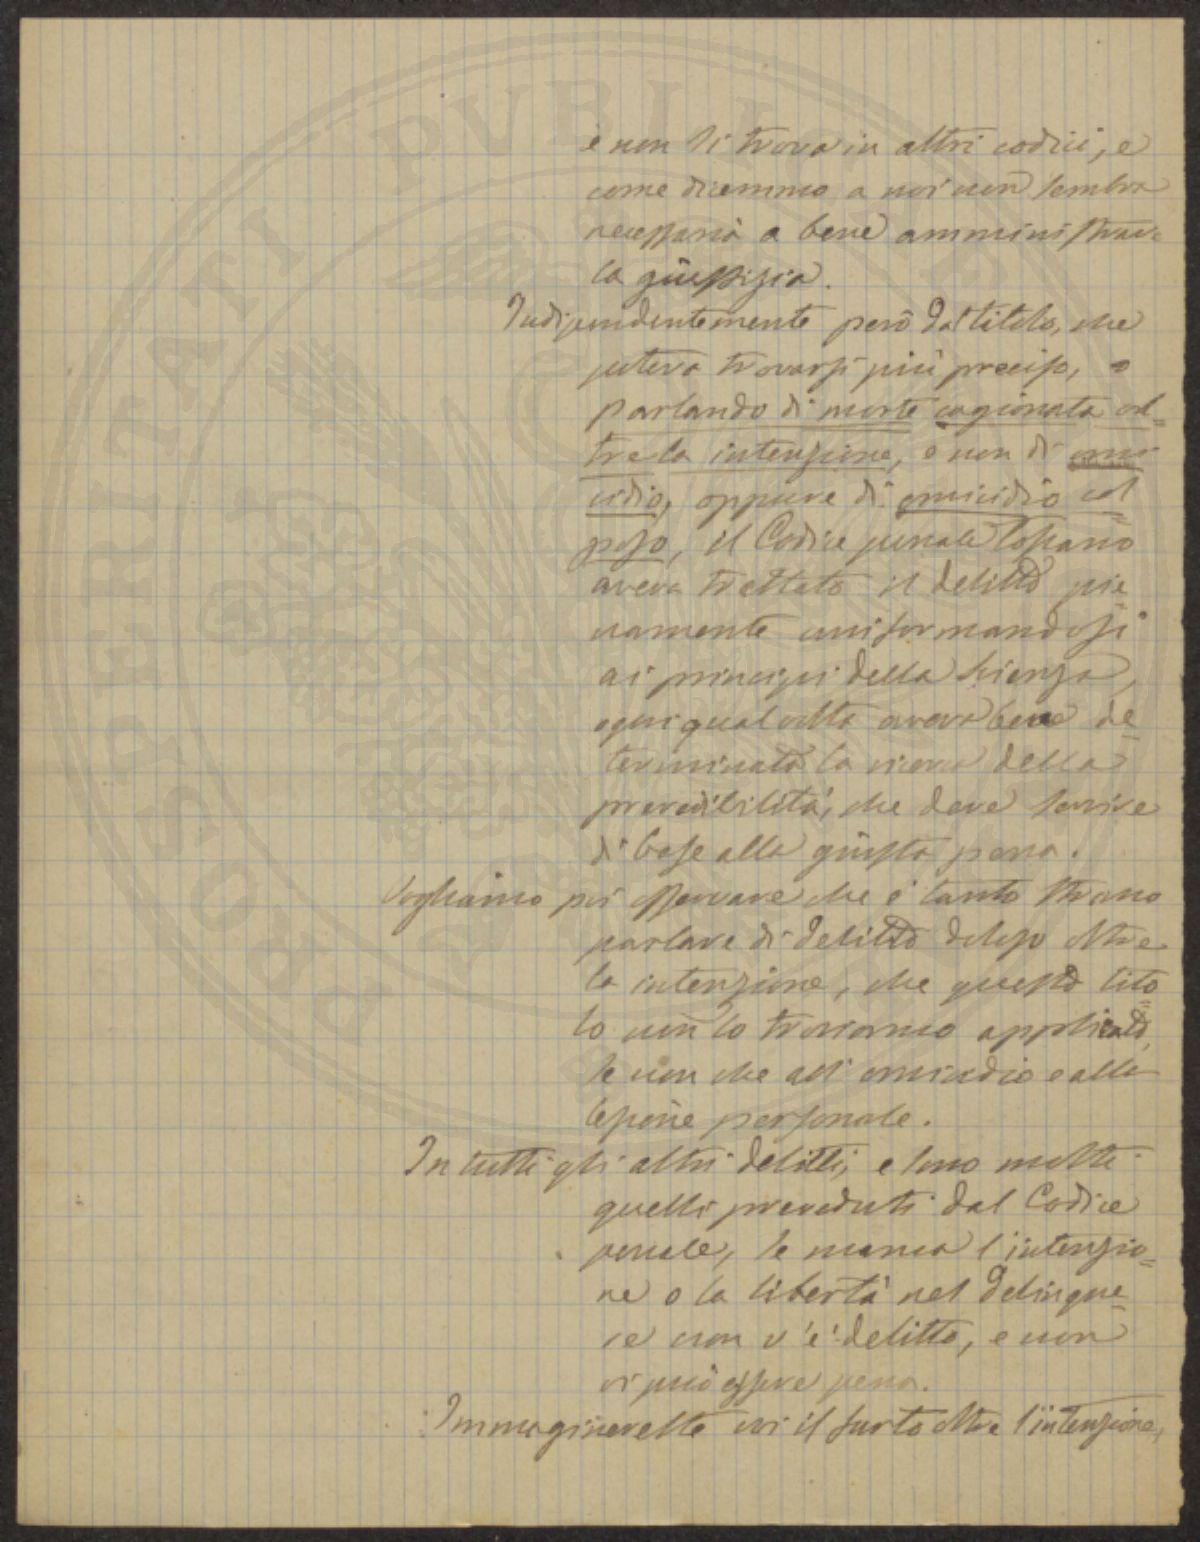 e non si trova in altri codici, e
come dicemmo a noi non sembra
necessaria a bene amministrar
la giustizia.
Indipendentemente però dal titolo, che
poteva trovarsi più preciso, o
parlando di morte cagionata ol=
tre la intenzione, e non di omi
cidio, oppure di omicidio col
poso, il Codice penale Toscano
aveva trattato il delitto pie
namente uniformandosi
ai principi della scienza,
ogni qual volta aveva bene de
terminata la norma della
prevedibilità, che deve servire
di base alla giusta pena.
Vogliamo poi osservare che è tanto strano
parlare di delitto doloso oltre
la intenzione, che questo tito
lo non lo troviamo applicato,
se non che all'omicidio e alla
lesione personale.
In tutti gli altri delitti, e sono molti
quelli preveduti dal Codice
penale, se manca l'intenzio=
ne o la libertà nel delinque
te non v'è delitto, e non
vi può essere pena.
Immaginereste voi il furto oltre l'intenzione,
PROSPERITATI PUBLICAE